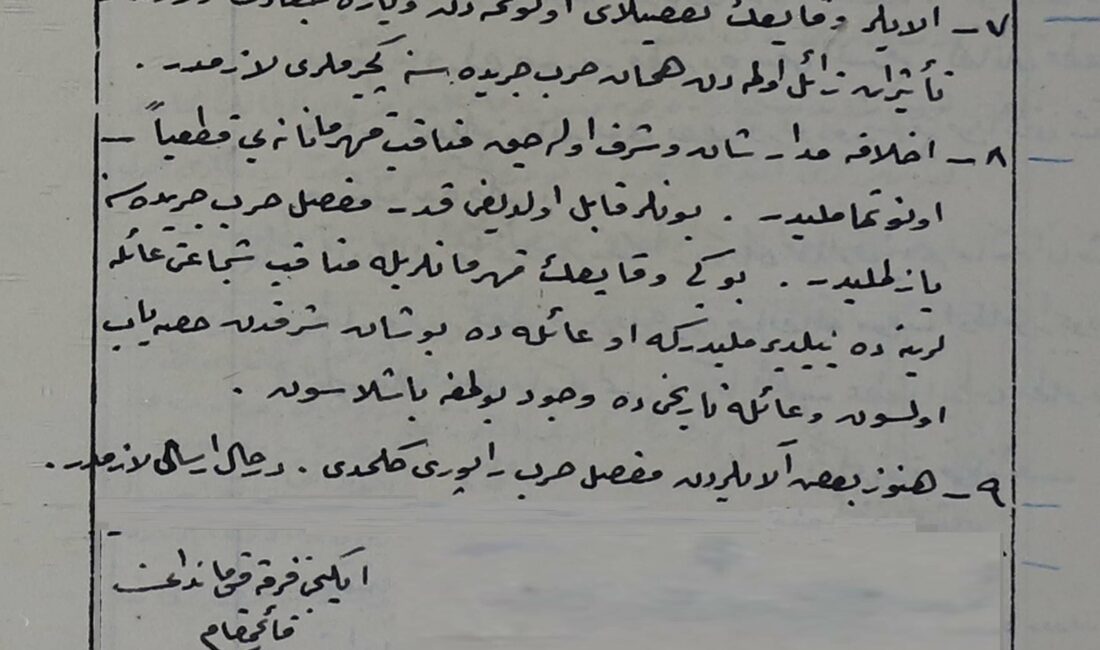 ٧ـ آلایلر وقایعك تفصیلاتی اونوتمه‌دن و
تأثیرات زائل اولمادن همان حرب جریده‌سنه كچیرملری لازمدر .
٨ـ اخلافه مدار شان و شرف اوله‌جق مناقب قهرمانانه‌یی قطعیاً ـ
اونوتمامليدر . بونلر قابل اولدیغی قدر مفصل حرب جریده‌سنه
یازلملیدر . بو كبی وقایعك قهرمانلریله مناقب شجاعتی عائله
لرینه ده بیلدیرملیدركه او عائله ده بو شان شرفدن حصه‌یاب
اولسون و عائله تاریخی ده وجود بولمغه باشلاسون .
٩ـ هنوز بعض آلایلردن مفصل حرب راپوری كلمدی . درحال ارسالی لازمدر .
ایكنجی فرقه قوماندانی
قائممقام